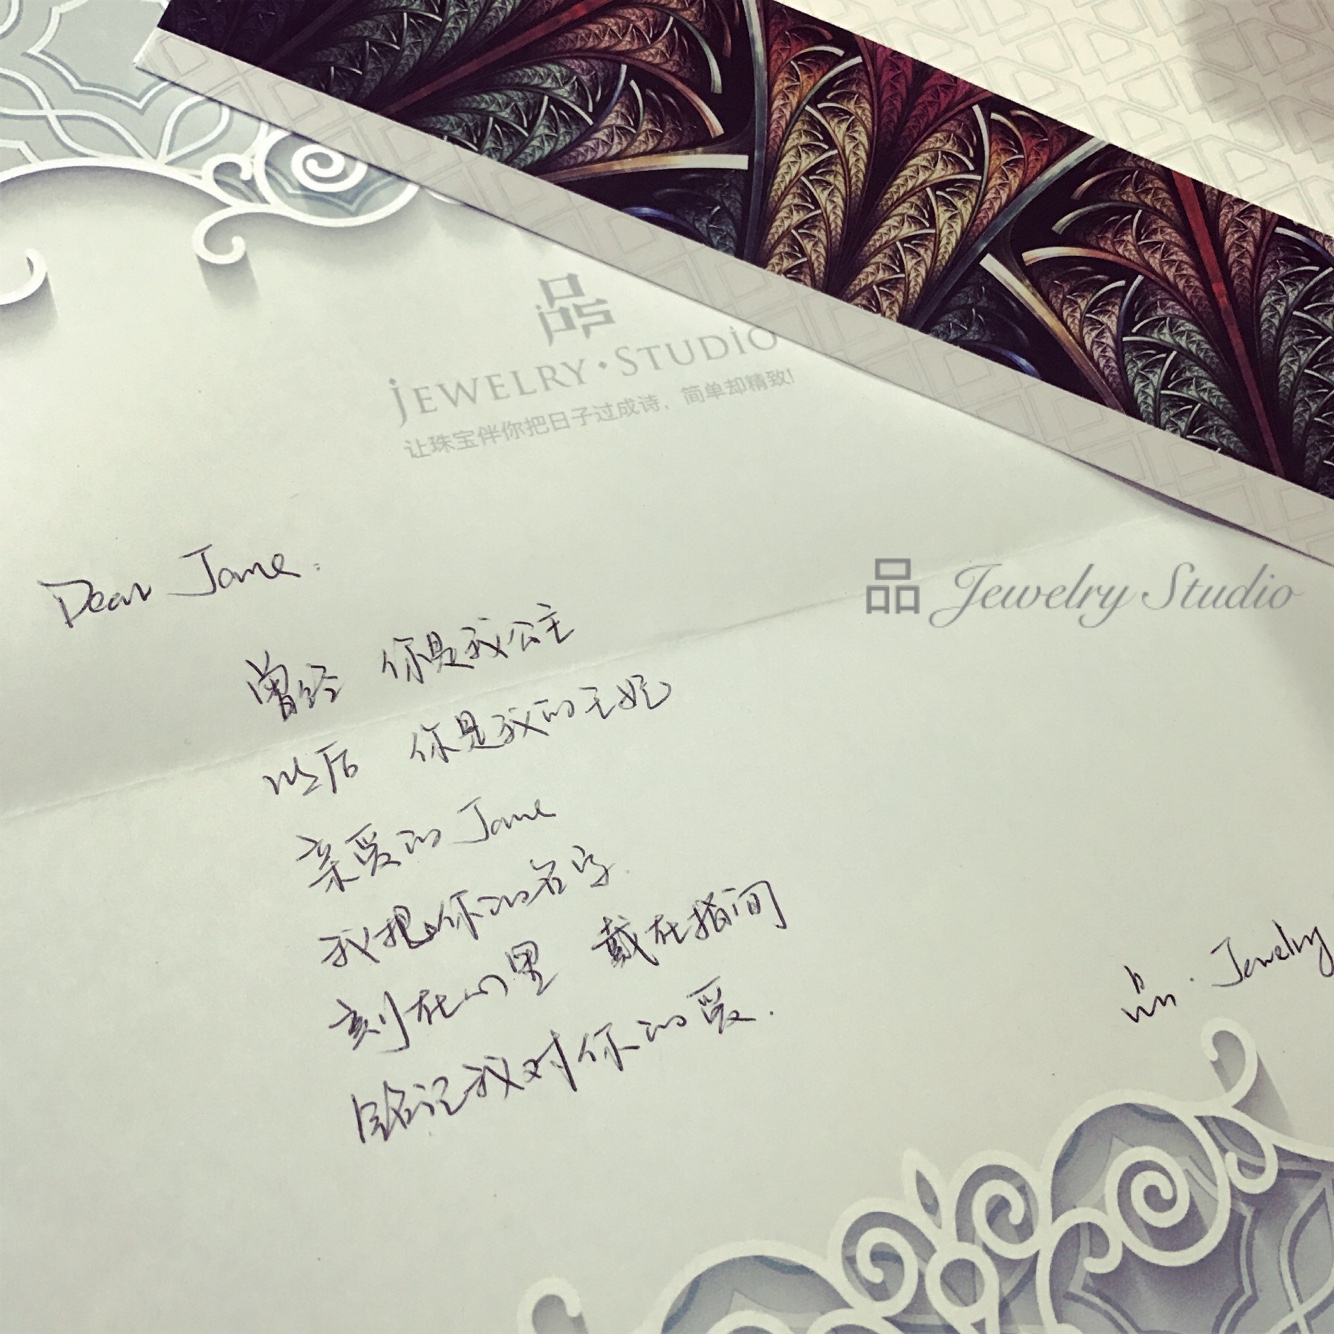 品
JEWELRY·STUDIO
让珠宝伴你把日子过成诗,简单却精致!
Dear Jane:
品 Jewelry Studio
曾经 你是我公主
以后 你是我的王妃
亲爱的Jane
我把你的名字
刻在心里 戴在指间
铭记我对你的爱.
品·Jewelry